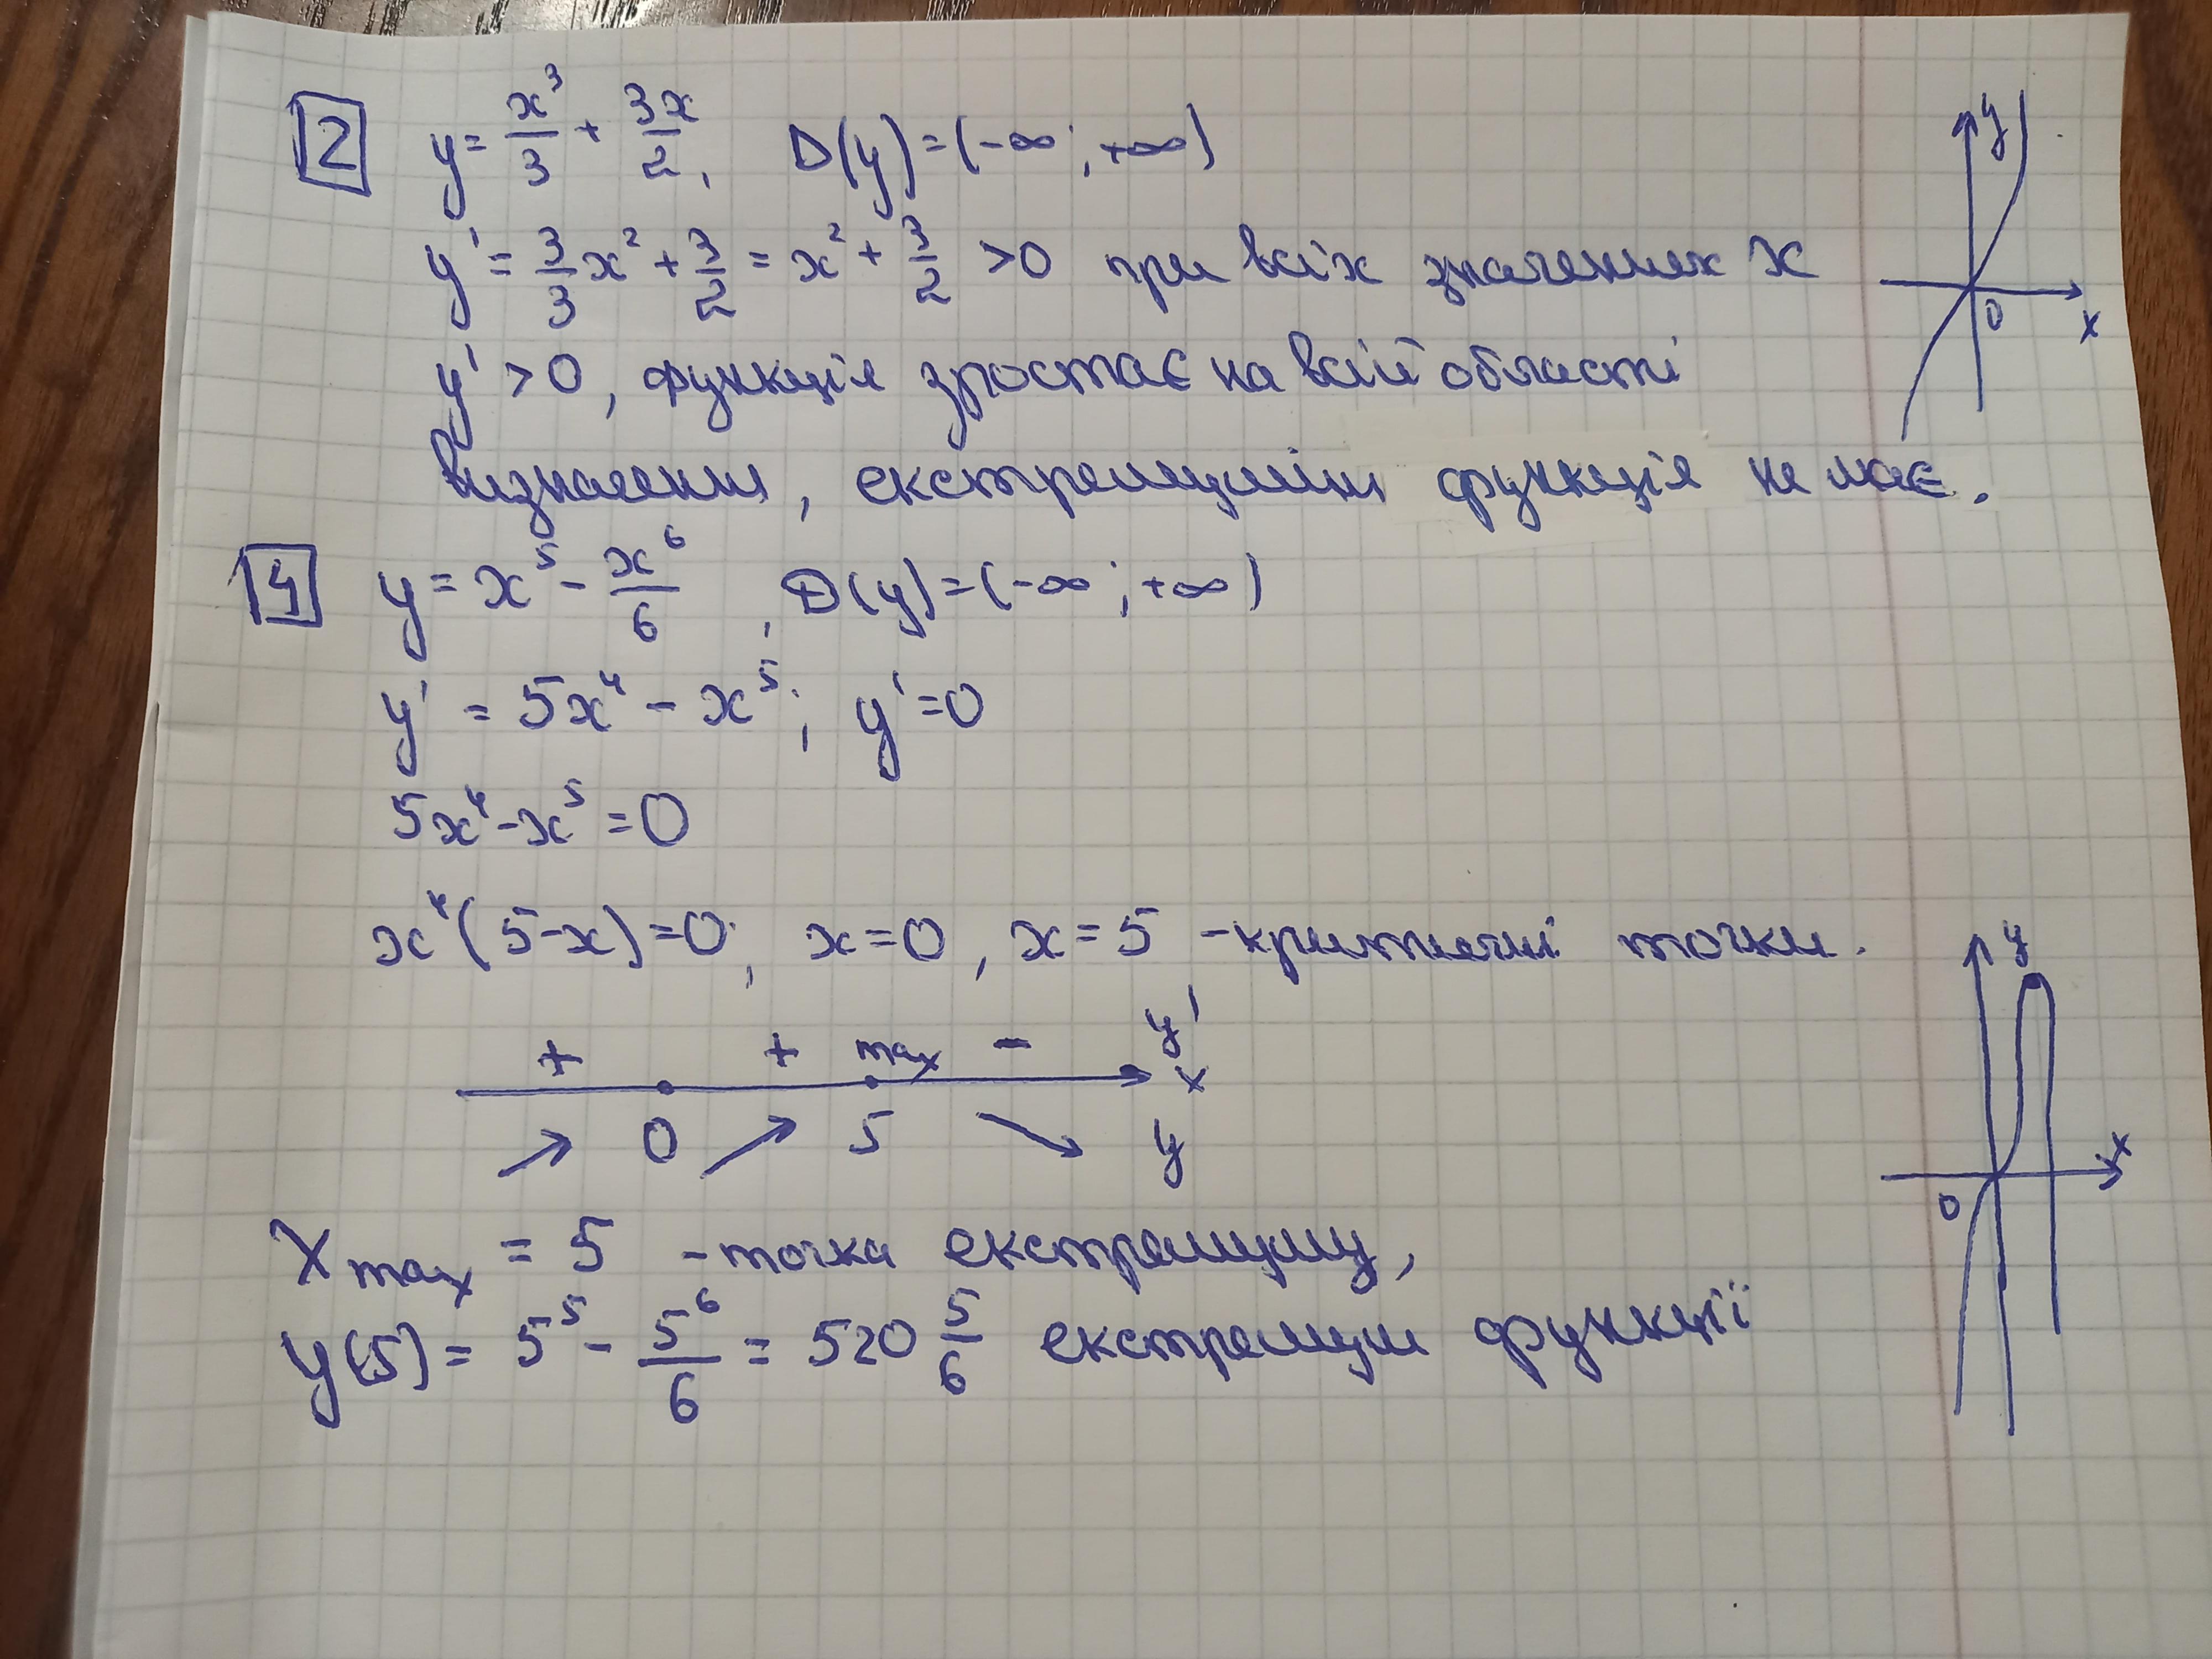 2 y = x³/3 + 3x/2, D(y)=(-∞; +∞)
y' = 3/3 x² + 3/2 = x² + 3/2 >0 при всіх значеннях x
y' >0, функція зростає на всій області
визначення, екстремумів функція не має.
y
0
x
4 y = x⁵ - x⁶/6, D(y)=(-∞; +∞)
y' = 5x⁴ - x⁵; y'=0
5x⁴-x⁵=0
x⁴(5-x)=0; x=0, x=5 -критичні точки.
+ + max - y'
x
0 5 y
y
x
0
Xmax = 5 -точка екстремуму,
y(5)= 5⁵ - 5⁶/6 = 520 5/6 екстремум функції